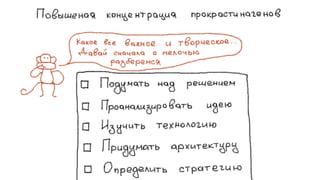 Повышеная концентрация прокрастиногенов
Какое все важное и творческое...
Давай сначала с мелочью
разберемся
Подумать над решением
Проанализировать идею
Изучить технологию
Придумать архитектуру
Определить стратегию